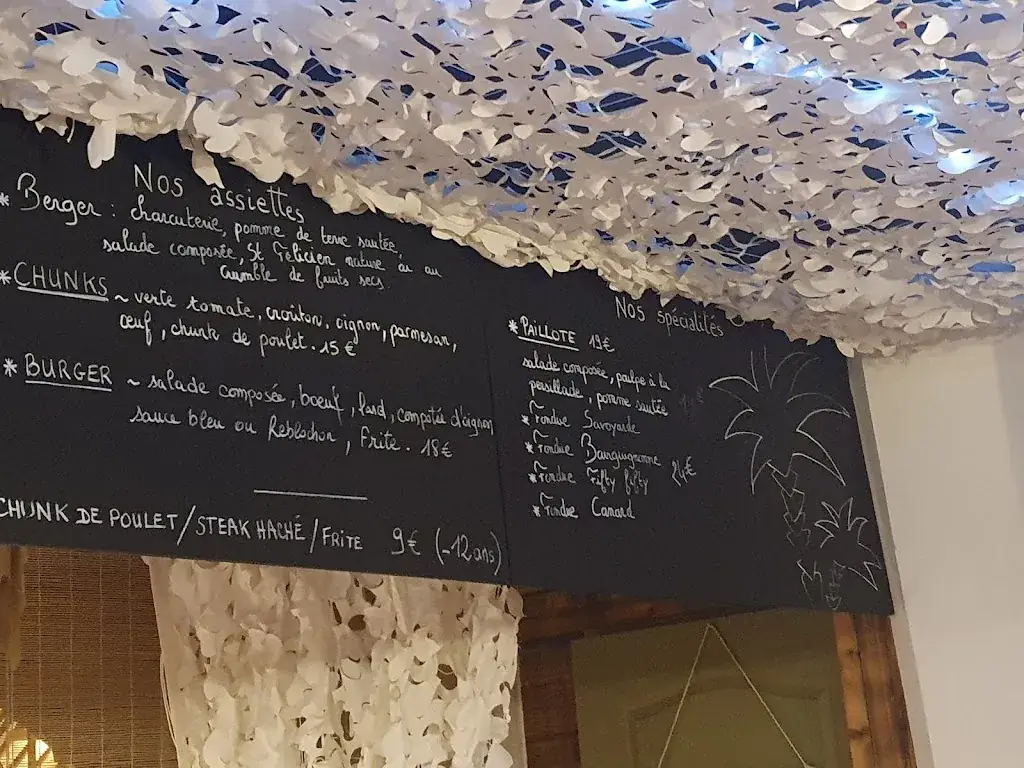 Nos assiettes
* Berger : charcuterie, pomme de terre sautée,
salade composée, St Félicien nature ou au
crumble de fruits secs.
* CHUNKS ~ verte tomate, croûton, oignon, parmesan,
œuf, chunk de poulet. 15 €
* BURGER ~ salade composée, boeuf, lard, compotée d'oignon
sauce bleu ou Reblochon, Frite. 18€
CHUNK DE POULET/STEAK HACHÉ/FRITE 9€ (-12ans)
Nos spécialités
* PAILLOTE 19€
salade composée, poulpe à la
persillade, pomme sautée
* Fondue Savoyarde
* Fondue Bourguignonne
* Fondue Fifty fifty 24€
* Fondue Canard